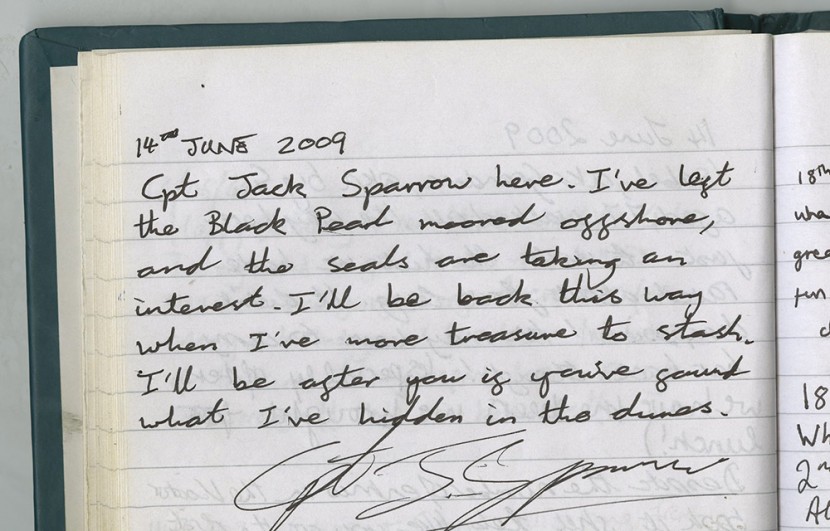 14th JUNE 2009
Cpt Jack Sparrow here. I've left
the Black Pearl moored offshore,
and the seals are taking an
interest. I'll be back this way
when I've more treasure to stash.
I'll be after you if you've found
what I've hidden in the dunes.
Cpt J. Sparrow
18th
whe
grea
fun
18
Wh
2n